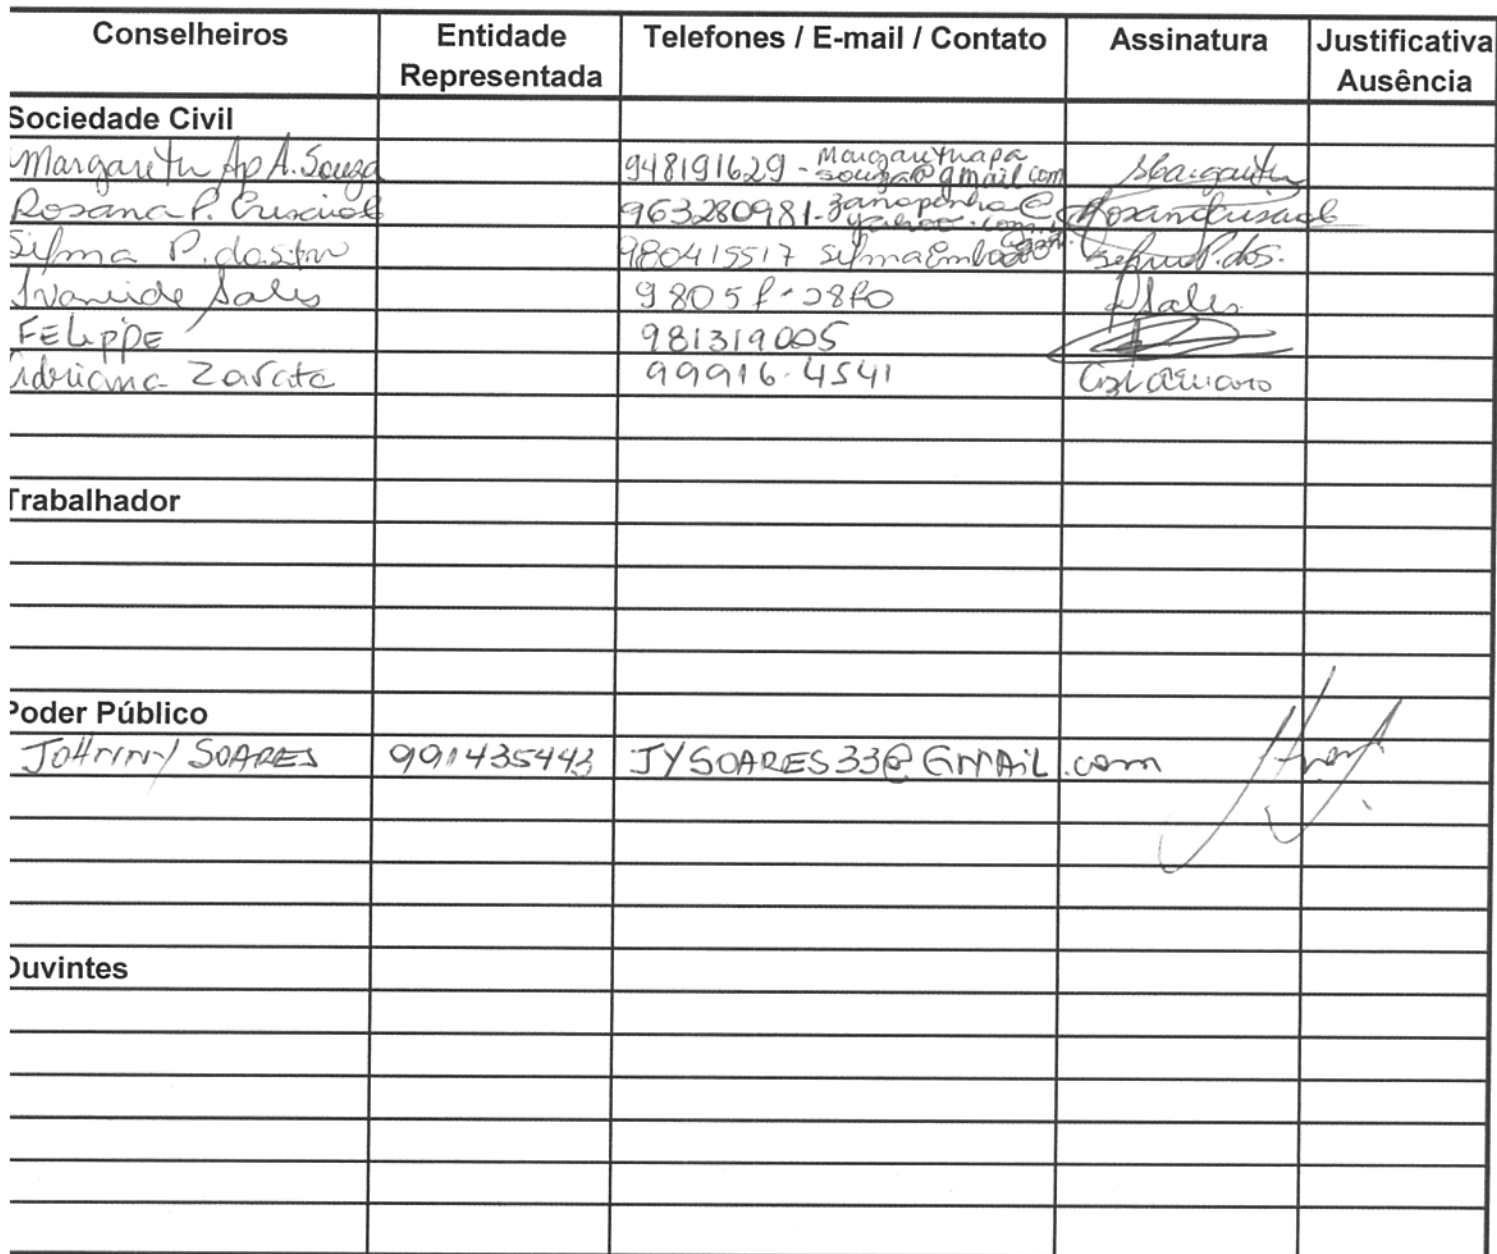 Conselheiros Entidade Representada Telefones / E-mail / Contato Assinatura Justificativa Ausência
Sociedade Civil
Margareth Ap A. Souza 948191629 - margarethapa souza@gmail.com Margareth
Rosana P. 963280981 - zanapenha@ yahoo.com
Silma P. 980415517
Ivaneide Sales Sales
FELIPPE 981319005
Adriana Zarate 99916-4541
Trabalhador
Poder Público
JOHNNY SOARES 991435443 JYSOARES33@GMAIL.com
Ouvintes